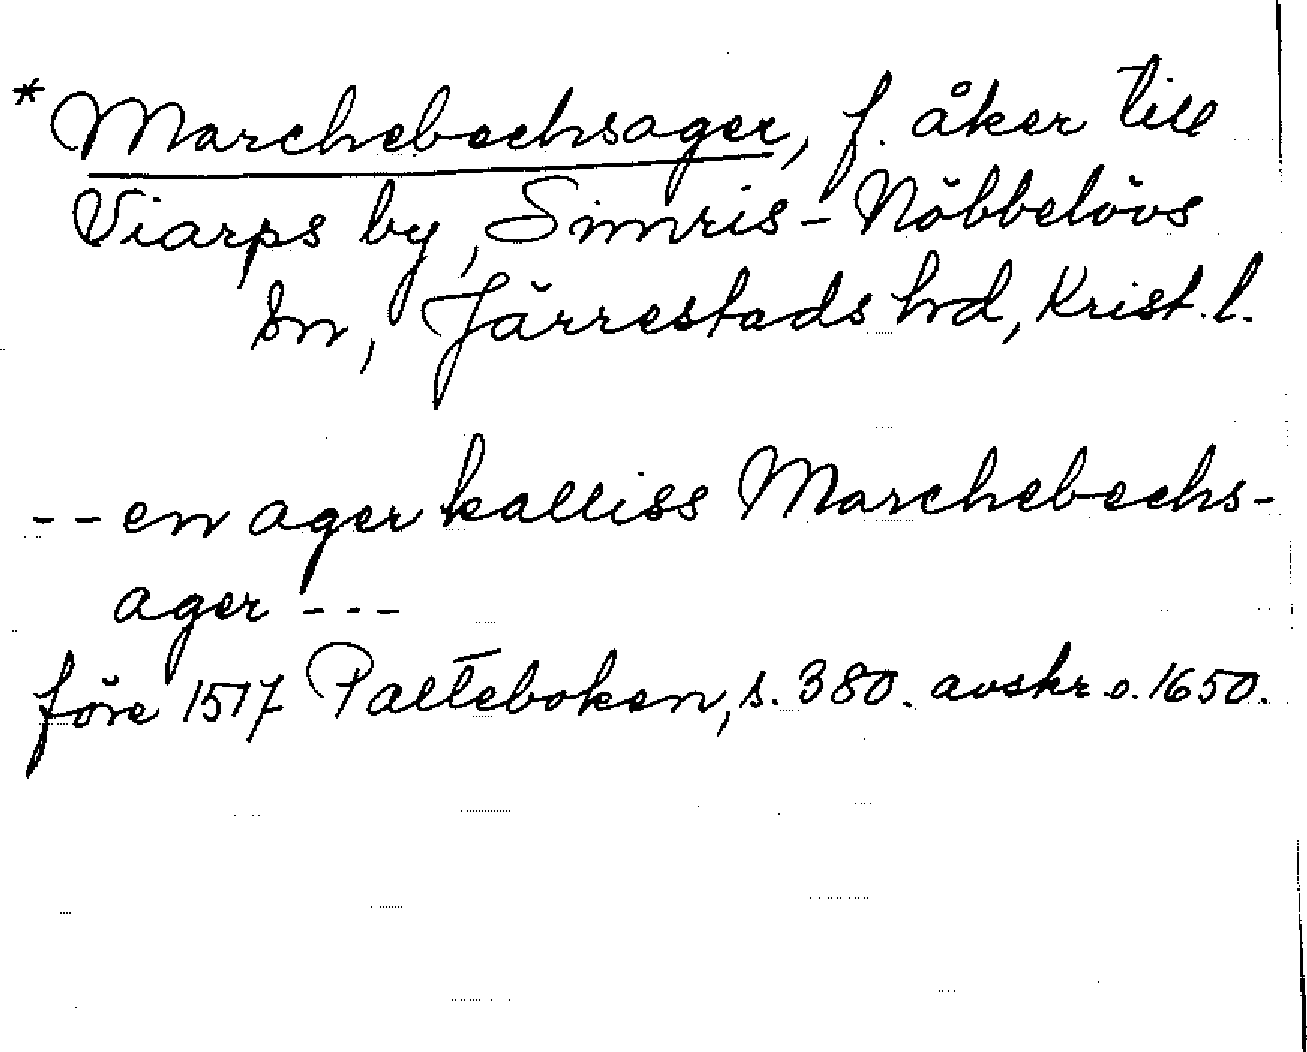 * Marchebechsager, f. åker till
Viarps by, Simris-Nöbbelövs
sn, Järrestads hrd, Krist. l.
-- en ager kalliss Marchebechs-
ager ---
före 1517 Palteboken, s. 380. avskr o. 1650.